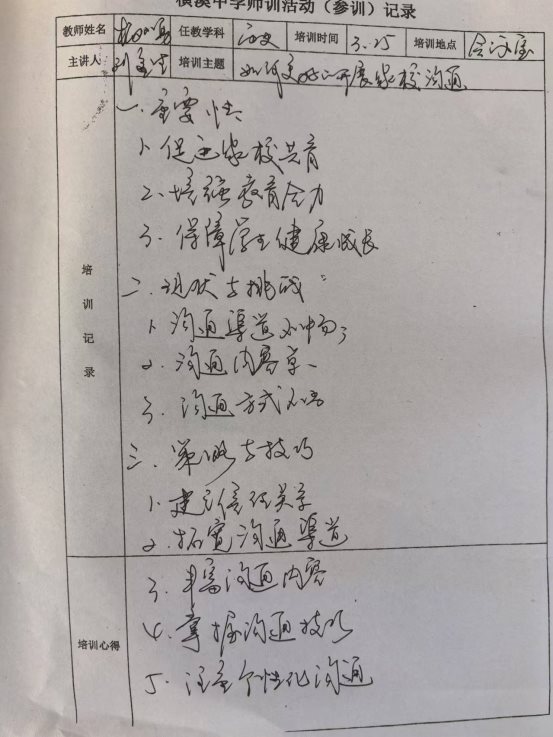 横溪中学师训活动（参训）记录
教师姓名 任教学科 历史 培训时间 3.25 培训地点 会议室
主讲人 培训主题 如何更好的开展家校沟通
培训记录
一.重要性
1.促进家校共育
2.增强教育合力
3.保障学生健康成长
二.现状与挑战
1.沟通渠道不畅
2.沟通内容单一
3.沟通方式不当
三.策略与技巧
1.建立信任关系
2.拓宽沟通渠道
培训心得
3.丰富沟通内容
4.掌握沟通技巧
5.注重个性化沟通